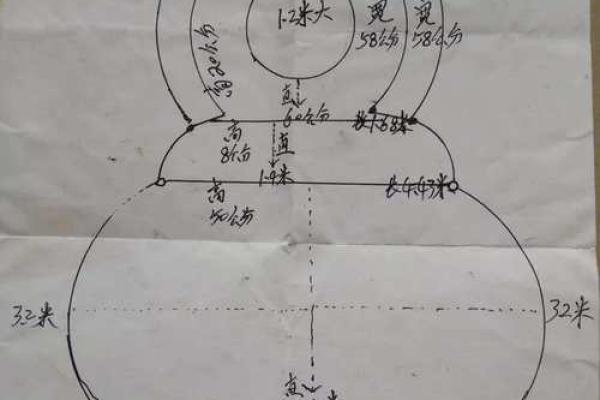 1.2米大
宽
58公分
宽
58公分
高20公分
直
60公分
长1.68米
高
8公分
直
1.9米
长4.43米
高
50公分
3.2米
32米
直
米